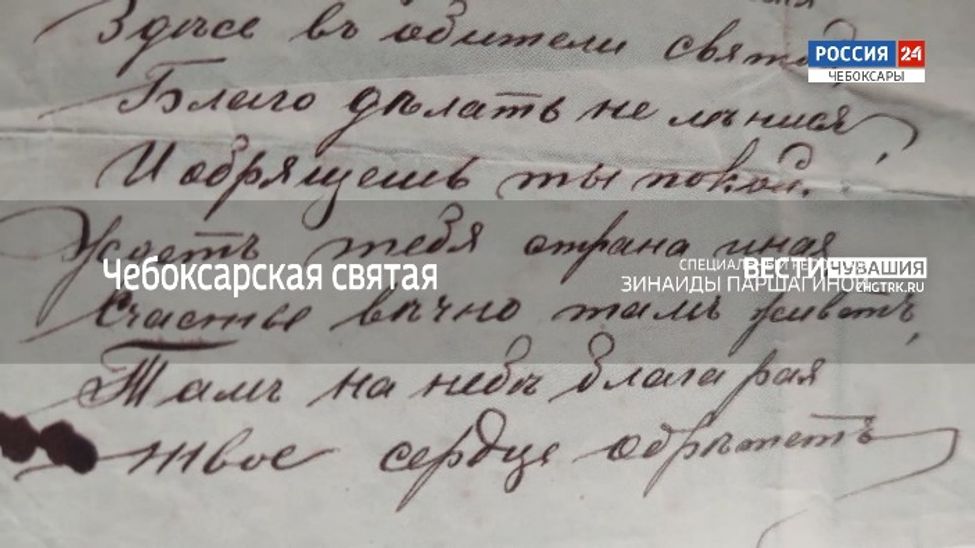 Здѣсь въ обители святой,
РОССИЯ 24
ЧЕБОКСАРЫ
Благо дѣлать не лѣнися,
И обрящешь ты покой.
Ждетъ тебя страна иная
Чебоксарская святая
СПЕЦИАЛЬНЫЙ РЕПОРТАЖ
ЗИНАИДЫ ПАРШАГИНОЙ
ВЕСТИ ЧУВАШИЯ
CHGTRK.RU
Счастье вѣчно тамъ живетъ,
Тамъ на небѣ блага рая
твое сердце обрѣтетъ